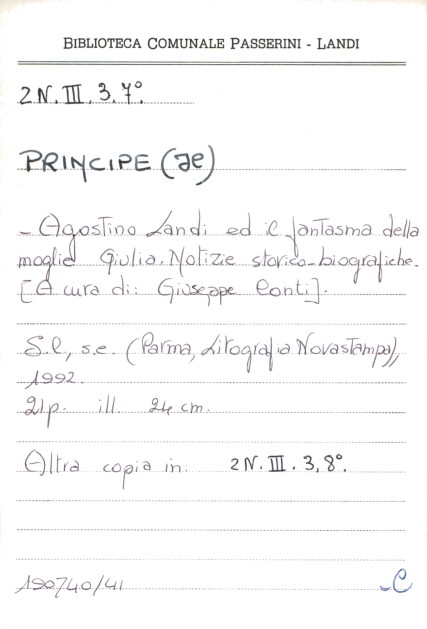 BIBLIOTECA COMUNALE PASSERINI - LANDI
2 N. III. 3. 7º.
PRINCIPE (Je)
- Agostino Landi ed il fantasma della
moglie Giulia. Notizie storico-biografiche.
[A cura di: Giuseppe Conti].
S.l., s.e. (Parma, Litografia Novastampa),
1992.
21p. ill. 24 cm.
Altra copia in: 2 N. III. 3, 8º.
190740/41
-C